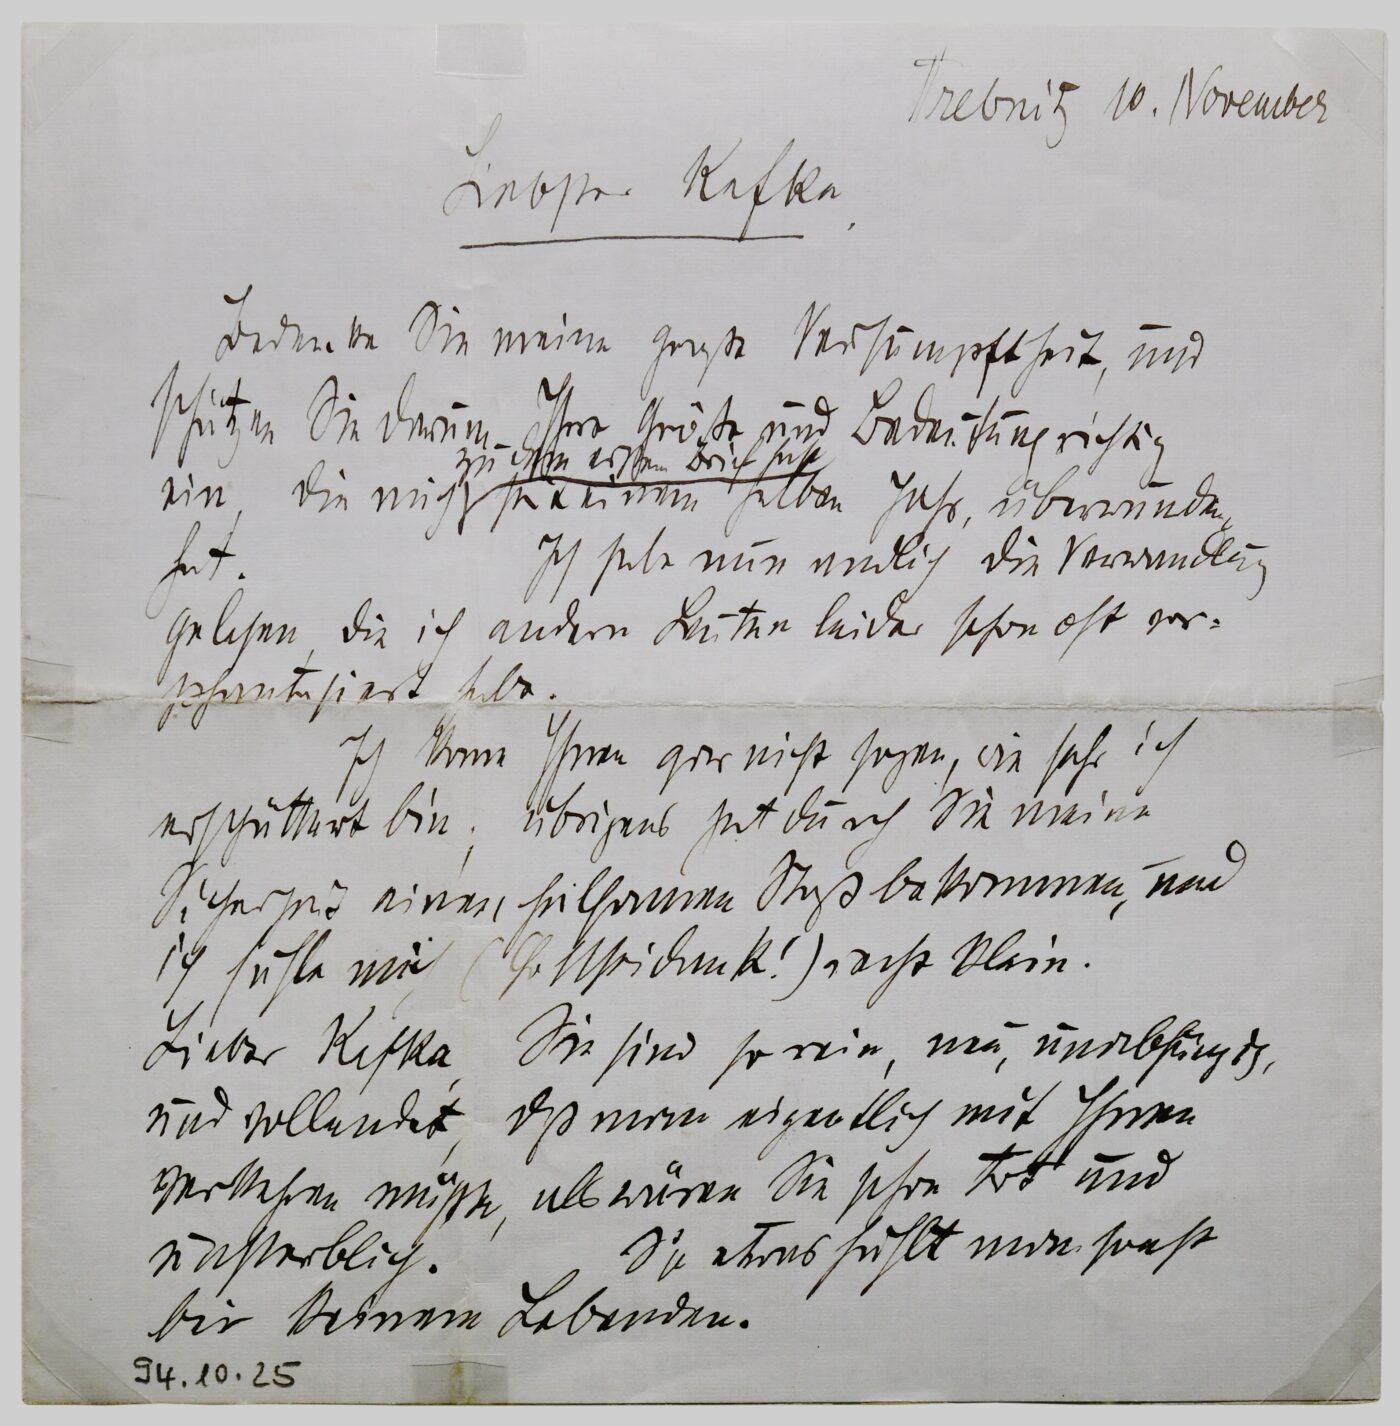 Trebnitz 10. November
Liebster Kafka,
Bedenke Sie meine große Versumpftheit, und
schätzen Sie darum Ihre Größe und Bedeutung richtig
zu dem ersten Brief seit
ein, die mich seit einem halben Jahr, überwunden
hat. Ich habe nun endlich die Verwandlung
gelesen, die ich andern Leuten leider schon oft vor-
phantasiert habe.
Ich kann Ihnen gar nicht sagen, wie sehr ich
erschüttert bin; übrigens hat durch Sie meine
Sicherheit einen heilsamen Stoß bekommen, und
ich fühle mich (Gottseidank!) recht klein.
Lieber Kafka, Sie sind so rein, neu, unabhängig,
und vollendet, daß man eigentlich mit Ihnen
verkehren müßte, als wären Sie schon tot und
unsterblich. So etwas fühlt man sonst
bei keinem Lebenden.
94.10.25